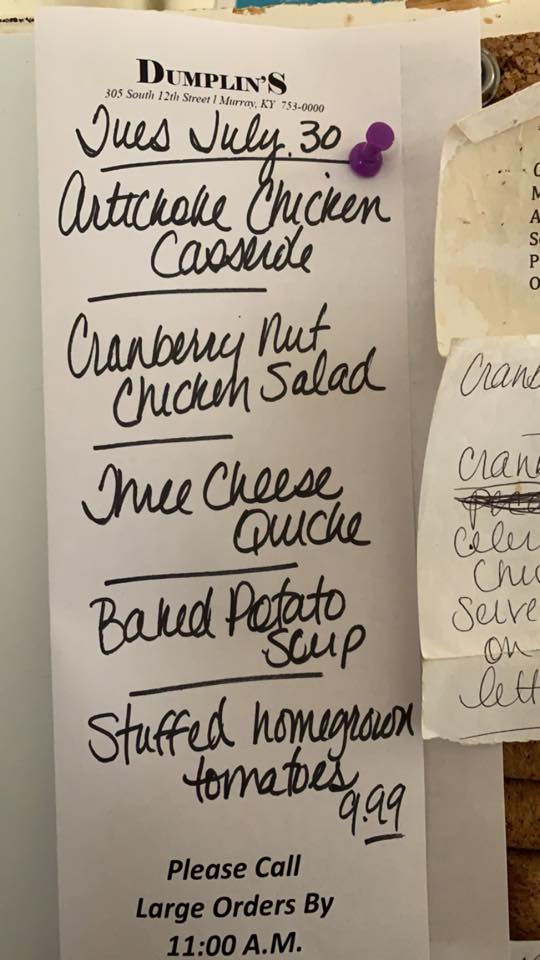 DUMPLIN'S
305 South 12th Street | Murray, KY 753-0000
Tues July. 30
Artichoke Chicken
Casserole
Cranberry Nut
Chicken Salad
Three Cheese
Quiche
Baked Potato
Soup
Stuffed homegrown
tomatoes
9.99
Please Call
Large Orders By
11:00 A.M.
on